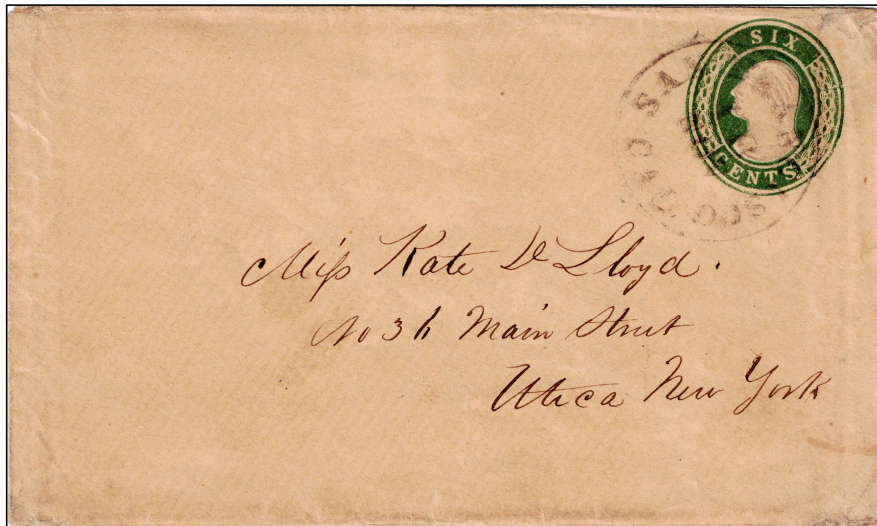 SIX
CENTS
SAN
CAL
Miss Kate D Lloyd.
No 36 Main Street
Utica New York